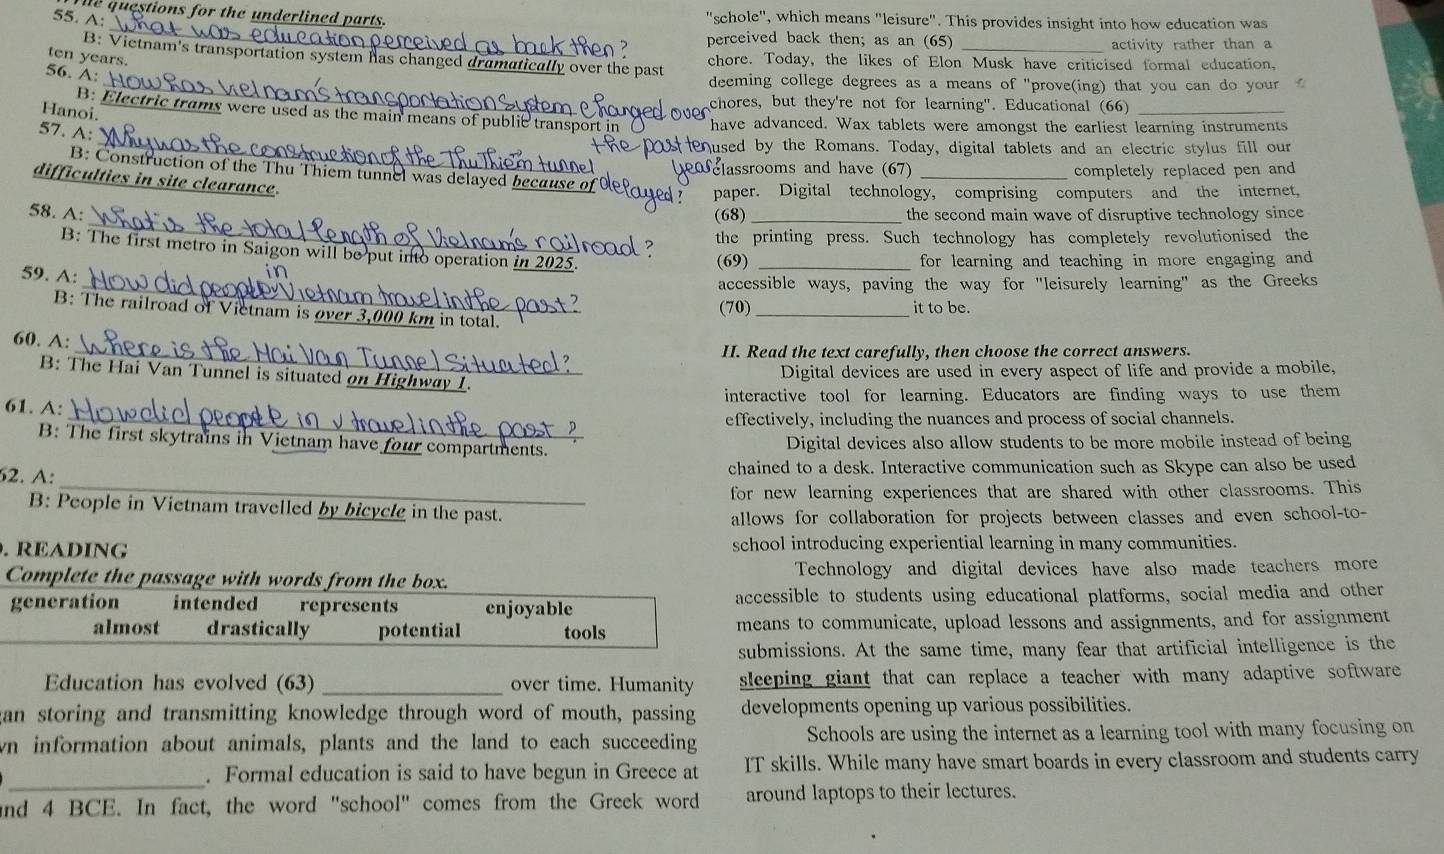 questions for the underlined parts.
55. A: What was education perceived as back then?
B: Vietnam's transportation system has changed dramatically over the past
ten years.
56. A: How has Vielnam's transportation System changed over
the past ten
year?
B: Electric trams were used as the main means of public transport in
Hanoi.
57. A: Why was the construction of the Thu Thiem tunnel
delayed?
B: Construction of the Thu Thiem tunnel was delayed because of
difficulties in site clearance.
58. A: What is the total length of Vielnam's railroad?
B: The first metro in Saigon will be put into operation in 2025.
59. A: How did people in Vietnam travel in the past?
B: The railroad of Vietnam is over 3,000 km in total.
60. A: Where is the Hai Van Tunnel Situated?
B: The Hai Van Tunnel is situated on Highway 1.
61. A: How did people in V travel in the past?
B: The first skytrains in Vietnam have four compartments.
62. A:
B: People in Vietnam travelled by bicycle in the past.
. READING
Complete the passage with words from the box.
generation intended represents enjoyable
almost drastically potential tools
Education has evolved (63) ____ over time. Humanity
an storing and transmitting knowledge through word of mouth, passing
information about animals, plants and the land to each succeeding
____. Formal education is said to have begun in Greece at
nd 4 BCE. In fact, the word "school" comes from the Greek word
"schole", which means "leisure". This provides insight into how education was
perceived back then; as an (65) ____ activity rather than a
chore. Today, the likes of Elon Musk have criticised formal education,
deeming college degrees as a means of "prove(ing) that you can do your
chores, but they're not for learning". Educational (66) ____
have advanced. Wax tablets were amongst the earliest learning instruments
used by the Romans. Today, digital tablets and an electric stylus fill our
classrooms and have (67) ____ completely replaced pen and
paper. Digital technology, comprising computers and the internet,
(68) ____ the second main wave of disruptive technology since
the printing press. Such technology has completely revolutionised the
(69) ____ for learning and teaching in more engaging and
accessible ways, paving the way for "leisurely learning" as the Greeks
(70) ____ it to be.
II. Read the text carefully, then choose the correct answers.
Digital devices are used in every aspect of life and provide a mobile,
interactive tool for learning. Educators are finding ways to use them
effectively, including the nuances and process of social channels.
Digital devices also allow students to be more mobile instead of being
chained to a desk. Interactive communication such as Skype can also be used
for new learning experiences that are shared with other classrooms. This
allows for collaboration for projects between classes and even school-to-
school introducing experiential learning in many communities.
Technology and digital devices have also made teachers more
accessible to students using educational platforms, social media and other
means to communicate, upload lessons and assignments, and for assignment
submissions. At the same time, many fear that artificial intelligence is the
sleeping giant that can replace a teacher with many adaptive software
developments opening up various possibilities.
Schools are using the internet as a learning tool with many focusing on
IT skills. While many have smart boards in every classroom and students carry
around laptops to their lectures.